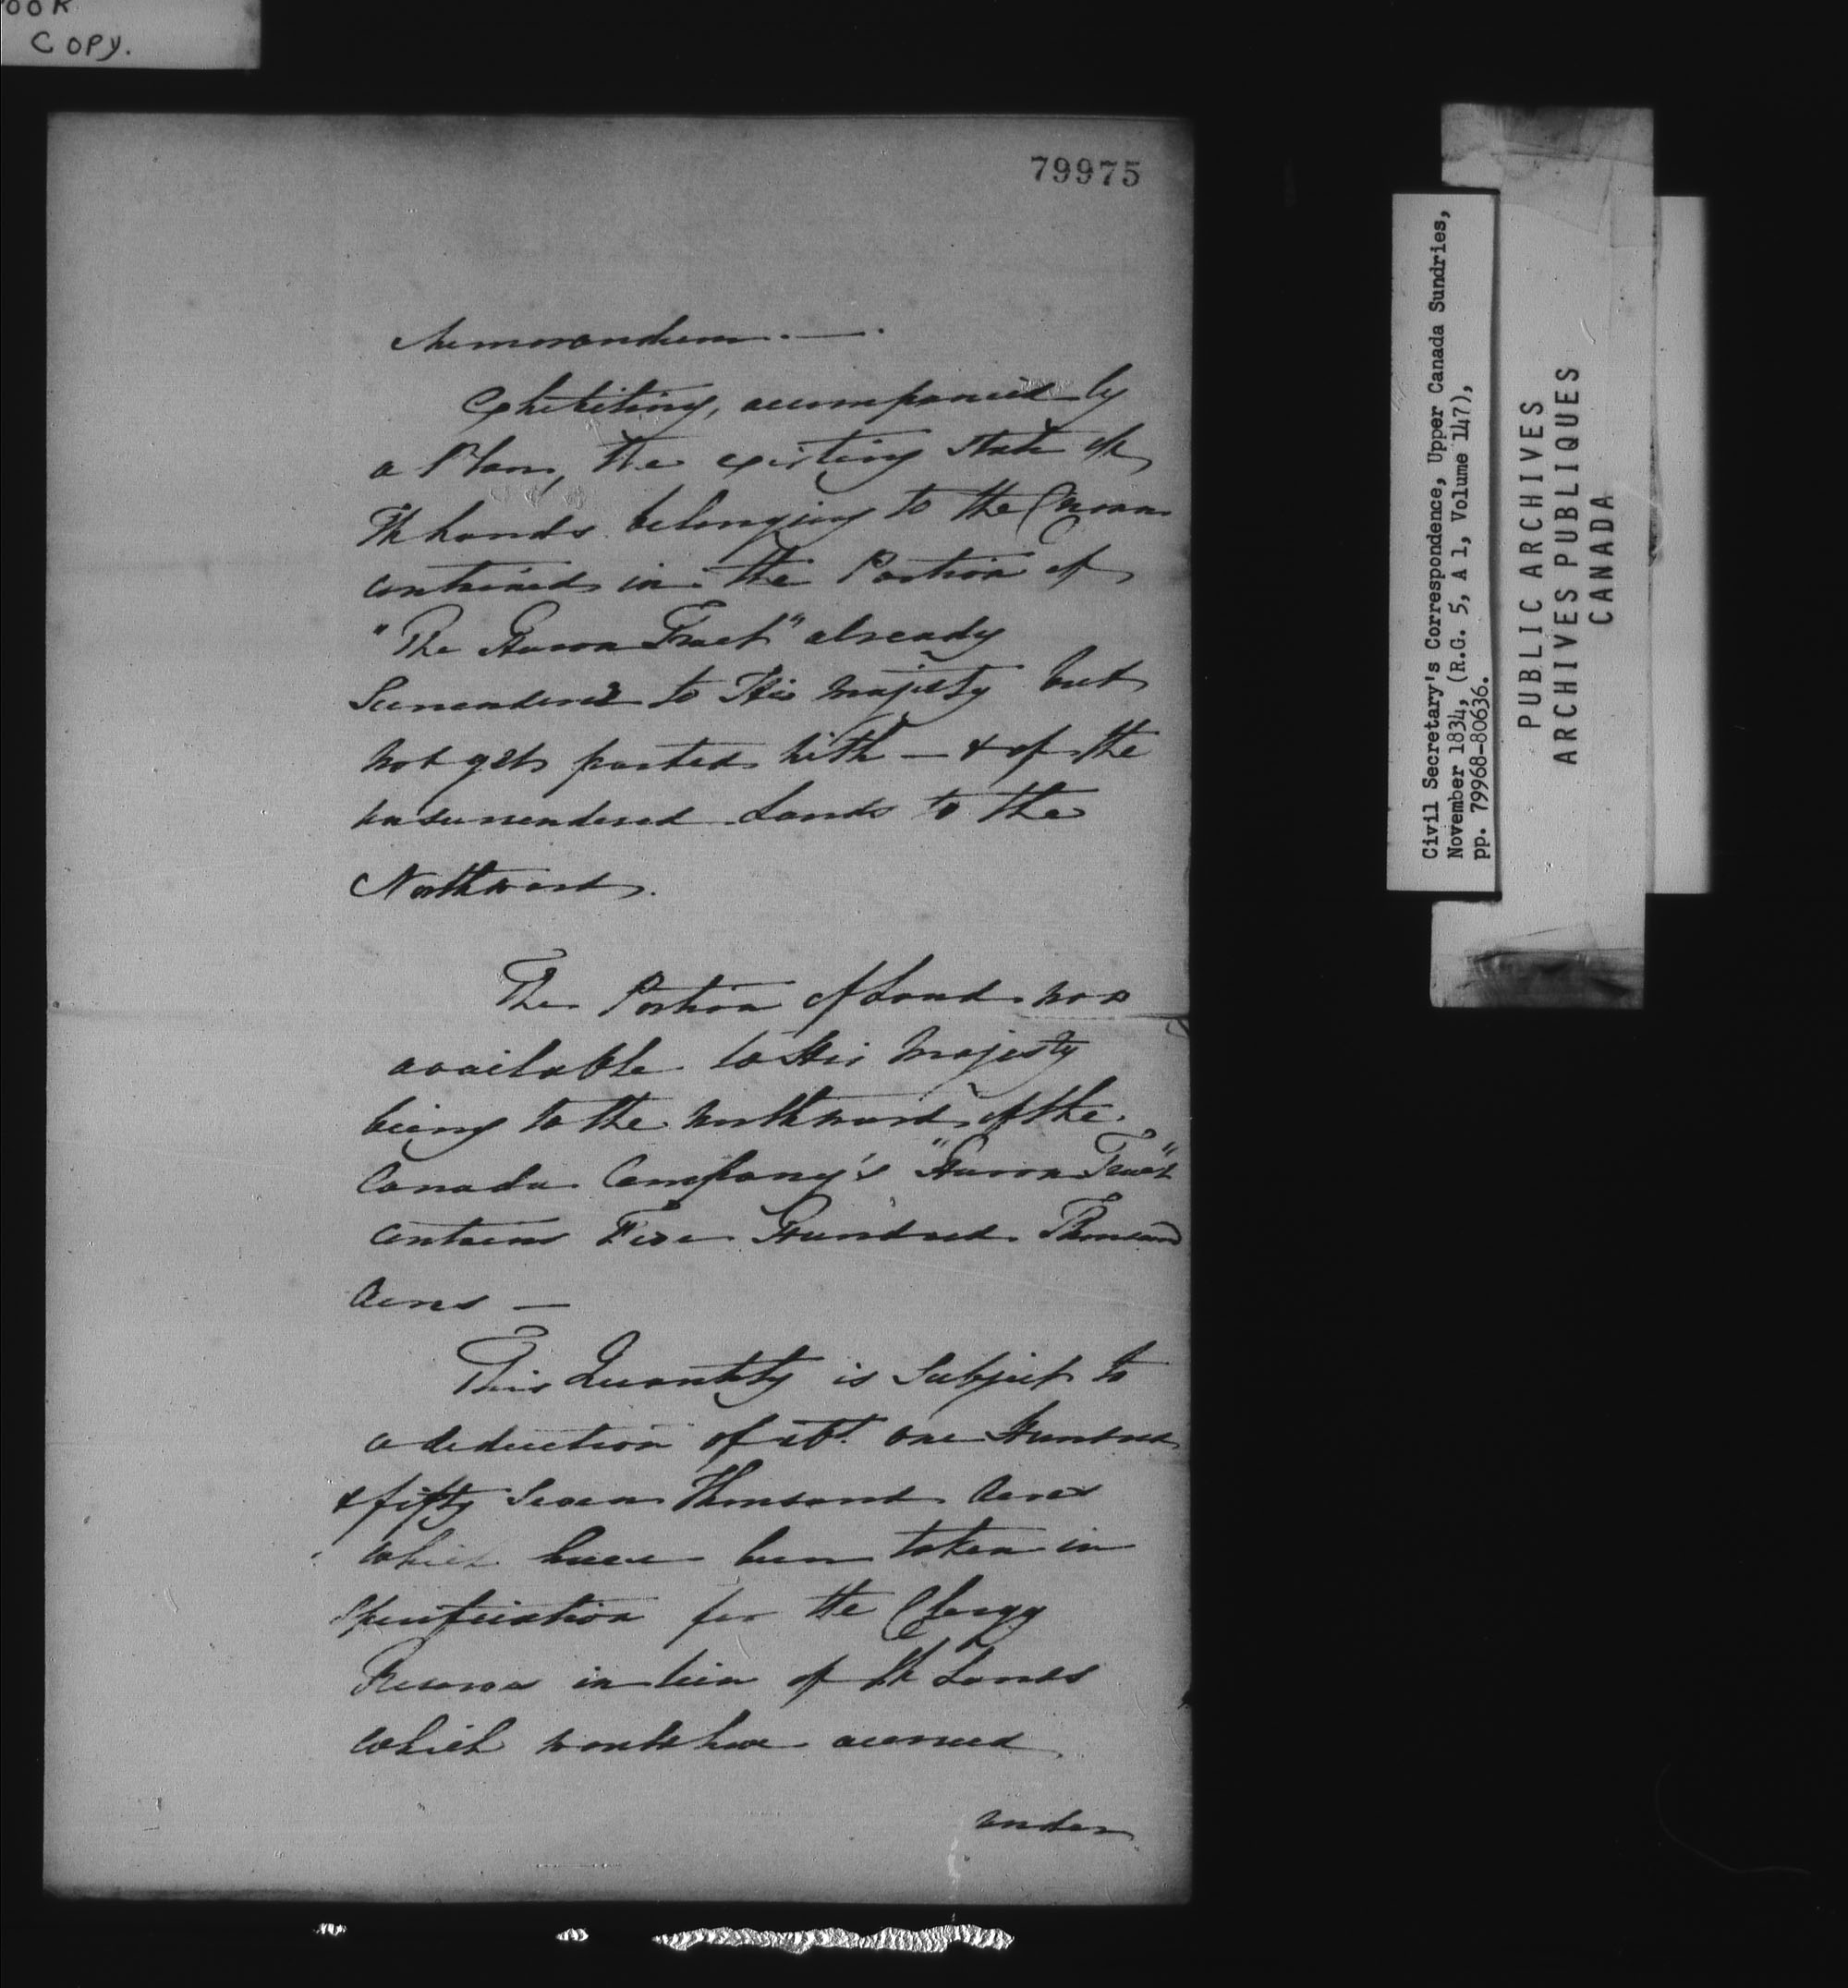 OOK
COPY.
79975
Memorandum. —
Exhibiting, accompanied by
a Plan, the existing State of
the Lands belonging to the Crown
contained in the Portion of
"The Huron Tract" already
Surrendered to His Majesty but
not yet parted with — & of the
unsurrendered Lands to the
Northward.
The Portion of Land now
available to His Majesty
being to the northward of the
Canada Company's "Huron Tract"
contains Five Hundred Thousand
Acres —
This Quantity is Subject to
a deduction of abt. one Hundred
& fifty Seven Thousand Acres
which have been taken in
Specification for the Clergy
Reserves in lieu of the Lands
which would have accrued
under
Civil Secretary's Correspondence, Upper Canada Sundries,
November 1834, (R.G. 5, A 1, Volume 147),
pp. 79968-80636.
PUBLIC ARCHIVES
ARCHIVES PUBLIQUES
CANADA